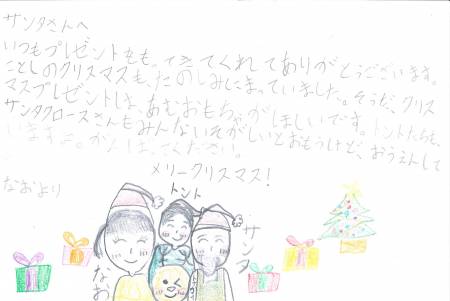 サンタさんへ
いつもプレゼントをも。てきてくれてありがとうございます。
ことしのクリスマスも、たのしみにまっていました。そうだ、クリス
マスプレゼントは、あむおもちゃがほしいです。トントたちも、
サンタクロースさんもみんないそがしいとおもうけど、おうえんして
います。がんばってください。
メリークリスマス!
なおより
トント
サンタ
なお